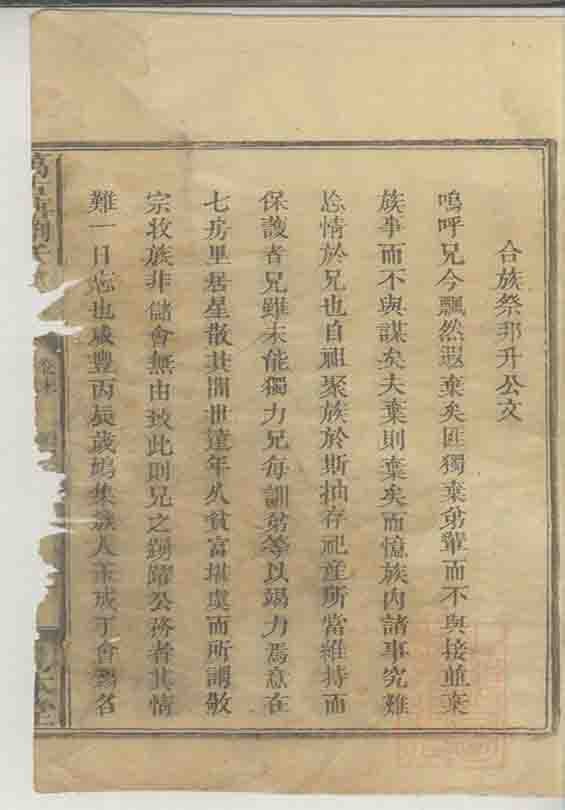 合族祭那升公文
嗚呼兄今飄然遐棄矣匪獨棄弟輩而不與接並棄
族事而不與謀矣夫棄則棄矣而憶族內諸事究難
忘情於兄也自祖聚族於斯抽存祀產所當維持而
保護者兄雖未能獨力兄每訓弟等以竭力為意在
七房里居星散其間世遠年久貧富堪虞而所謂敬
宗收族非儲會無由致此則兄之踴躍公務者其情
難一日忘也咸豐丙辰歲鳩集族人派成丁會
萬
卷末
堂